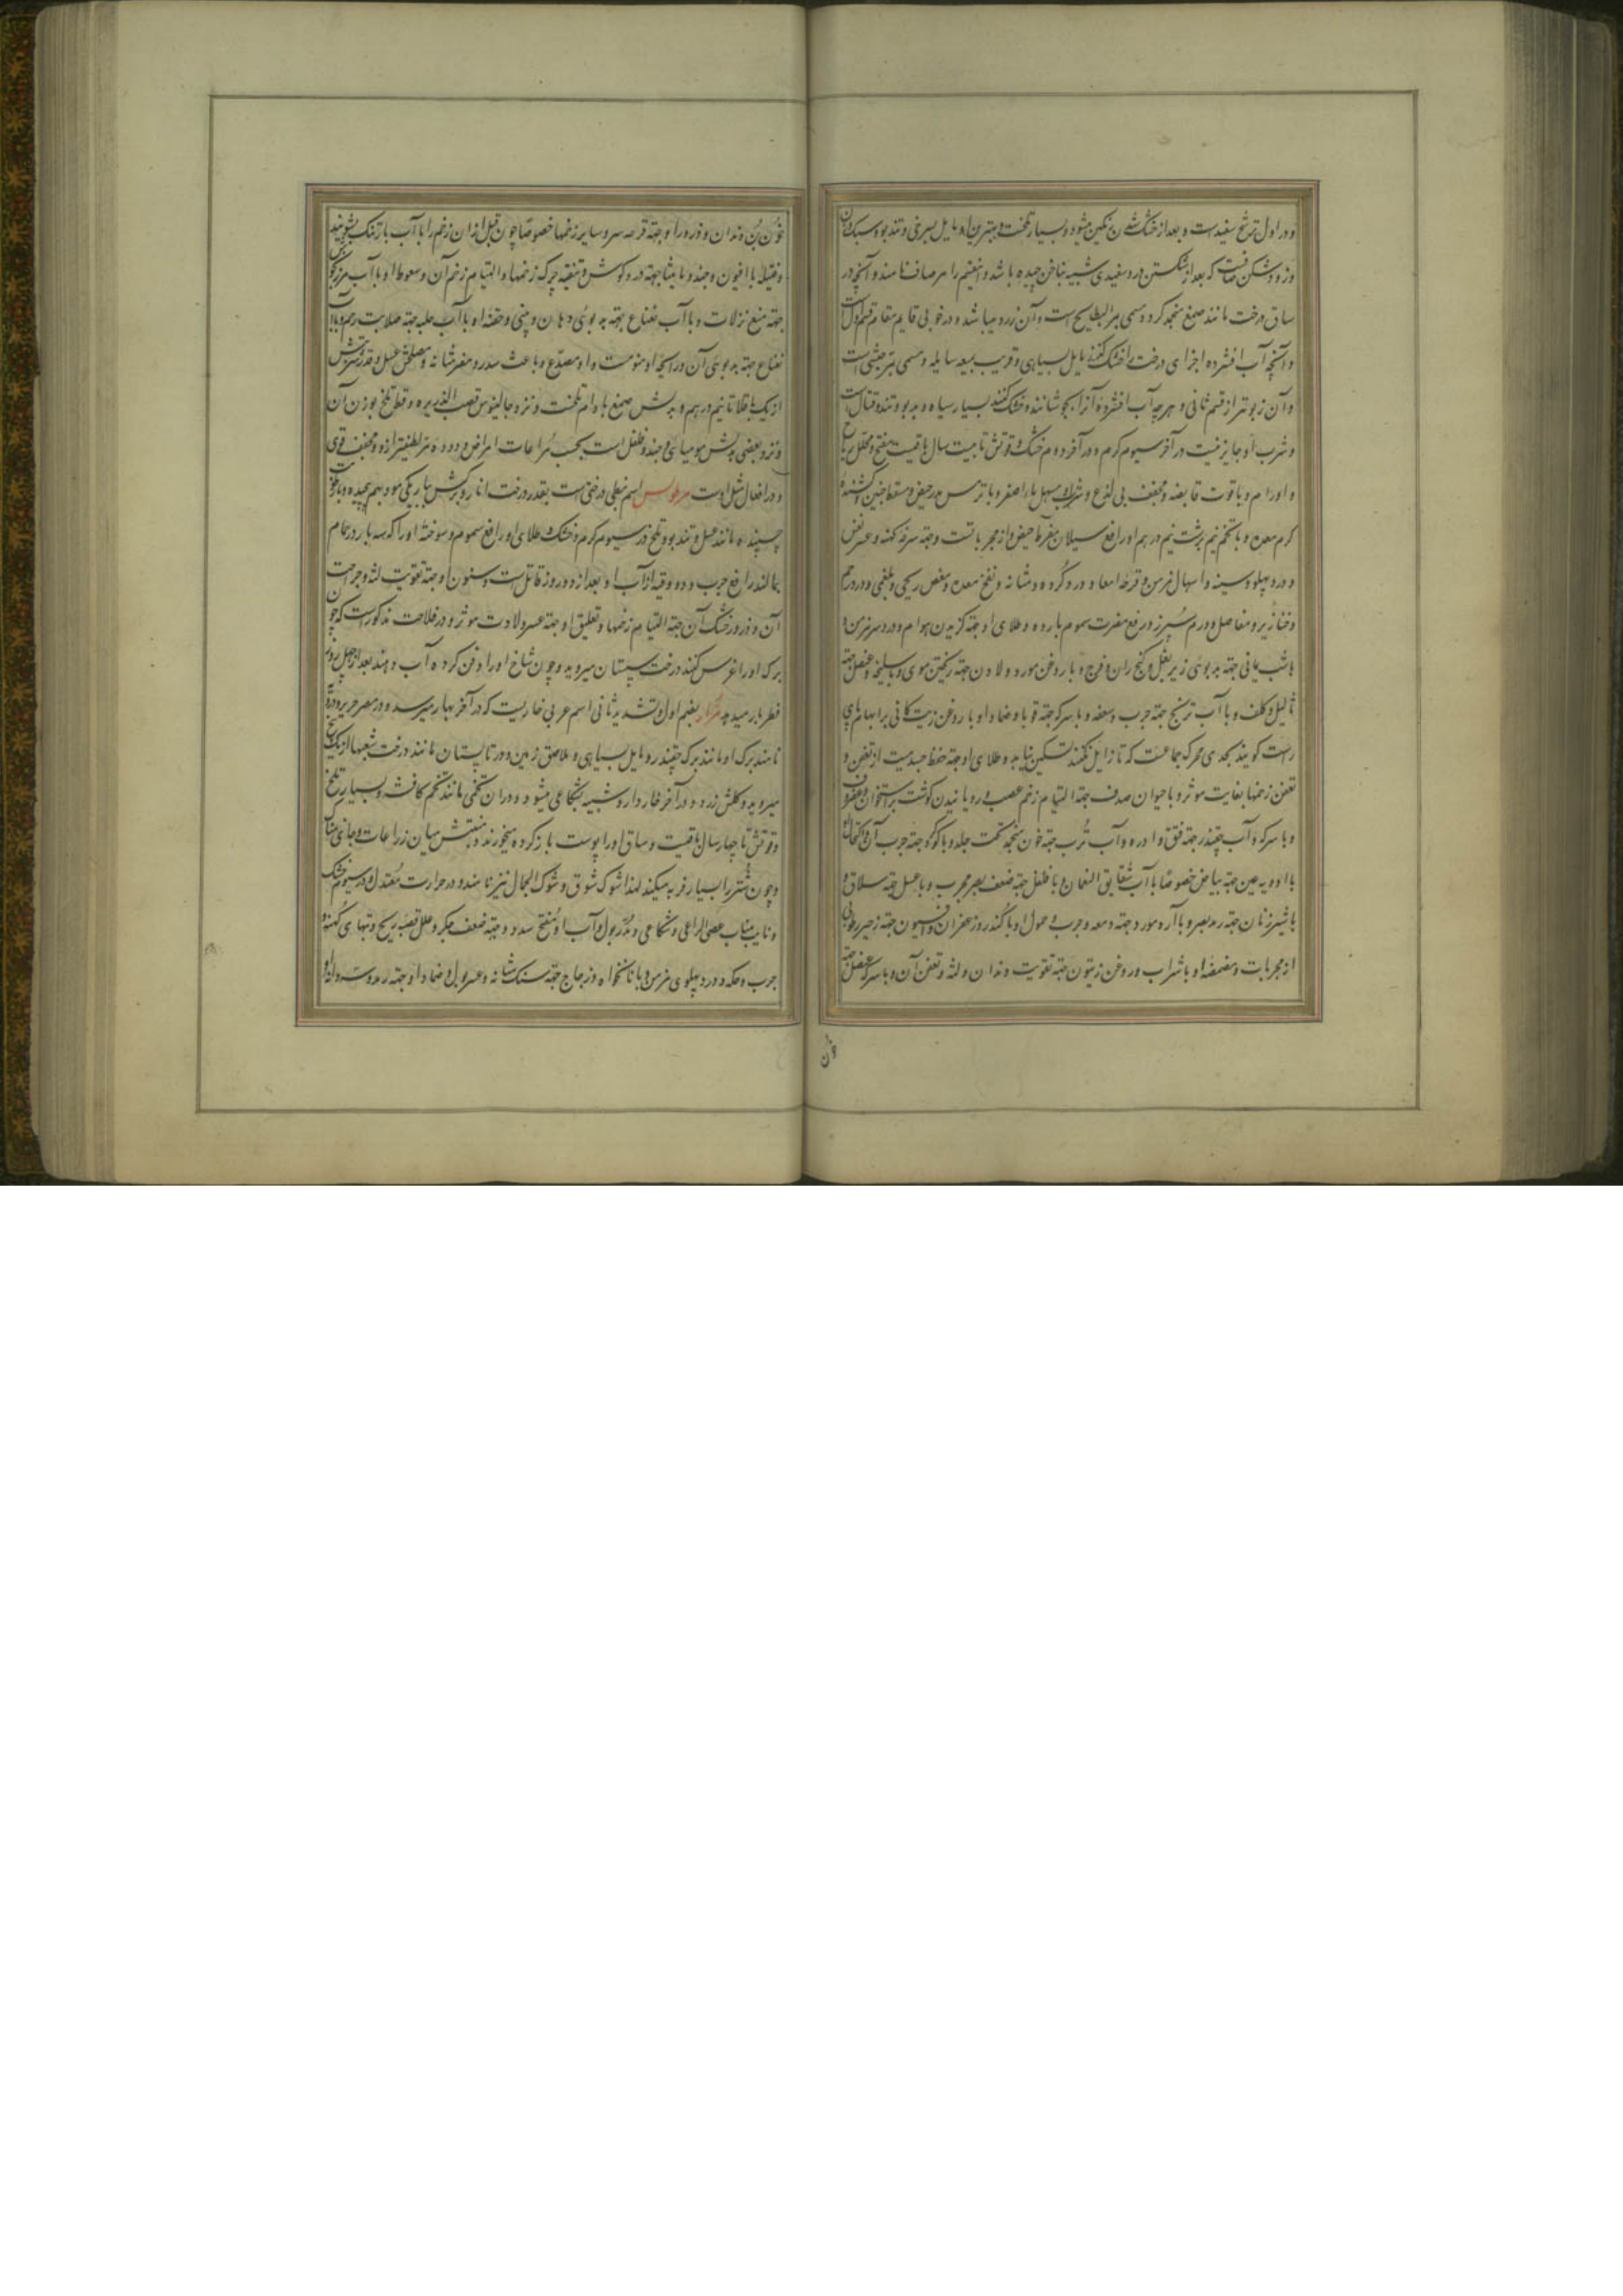 و در اول ترشح سفیدست و بعد از خشک شدن رنگین میشود و بسیار تلخست و بهترین او مایل بسرخی و تند بو و سبک وزن
و زود شکن صافیست که بعد از شکستن درو سفیدی شبیه بناخن چیده باشد و این قسم را مر صاف نامند و آنچه در
ساق درخت مانند صمغ منجمد کردد مسمی بمر البطایح است و آن زرد میباشد و در خوبی قایم مقام قسم اول است
و آنچه آب افشرده اجزای درخت را خشک کنند مایل بسیاهی و قریب بمیعه سایله و مسمی بمر حبشی است
و آن زبونتر از قسم ثانی و هرچه آب افشرده آنرا بجوشانند و خشک کنند بسیار سیاه و بدبو و تند و قتال است
و شرب او جایز نیست در آخر سیوم گرم و در آخر دوم خشک و قوتش تا بیست سال باقیست مفتح و محلل ریاح
و اورام و با قوت قابضه و مجفف بی لذع و شراب او مسهل ماء اصفر و با ترمس مدر حیض و مسقط جنین و کشنده
کرم معده و با تخم نیم برشت نیم درهم او رافع سیلان مفرط حیض و از مجرباتست و جهته سرفه کهنه و عسر نفس
و درد پهلو و سینه و اسهال مزمن و قرحه امعا و درد کرده و مثانه و نفخ معده و مغص ریحی و بلغمی و درد رحم
و خنازیر و مفاصل و ورم سپرز و رفع مضرت سموم بارده و طلای او جهته کزیدن هوام و درد سر مزمن و
با شب یمانی جهته بدبوئی زیر بغل و کنج ران و فرج و با روغن مورد و لادن جهته ریختن موی و با سلیخه و عسل جهته
ثالیل و کلف و با آب ترنج جهته جرب و سعفه و با سرکه جهته قوبا و ضماد او با روغن زیت کانی بر ابهام پای
راست کویند بحدی محرک جماعست که تا زایل نکنند تسکین نیابد و طلای او جهته حفظ جسد میت از تعفن و
تعفن زخمها بغایت موثر و با حیوان صدف جهته التیام زخم عصب و رویانیدن کوشت بر استخوان و غضروف
و با سرکه و آب چغندر جهته فتق و ادره و آب ترب جهته خون منجمد تحت جلد و با کوکرد جهته جرب آن و اکتحال او
با ادویه عین جهته بیاض خصوصا با آب شقایق النعمان و با فلفل جهته ضعف بصر مجرب و با عسل جهته سلاق و
با شیر زنان جهته رمد بصر و با آرد مورد جهته دمعه و جرب و حمول او با کندر و زعفران و افیون جهته زحیر رطوبی
از مجربات و مضمضه او با شراب و روغن زیتون جهته تقویت دندان و لثه و تعفن آن و با سرکه عنصل جهته
خون بن دندان و ذرور او جهته قرحه سر و سایر زخمها خصوصا چون قبل از ان زخم را با آب بارتنک بشویند
و فتیله با افیون و جند و مامیثا جهته درد کوش و تنقیه چرک زخمها و التیام زخم آن و سعوط او با آب مرزنجوش
جهته منع نزلات و با آب نعناع جهته بدبوئی دهان و بینی و حقنه او با آب حلبه جهته صلابت رحم و با آب
نعناع جهته بدبوئی آن و رایحه او منومست و او مصدع و باعث سدر و مضر مثانه و مصلحش عسل و قدر شربتش
از یک باقلا تا نیم درهم و بدلش صمغ بادام تلخست و نزد جالینوس قصب الذریره و قسط تلخ بوزن آن
و نزد بعضی بدلش مومیائی و جند و فلفل است بحسب مراعات امراض و دوده مر لطیفتر ازو و مجفف قوی
و در افعال مثل اوست مرطولس اسم نبطی درختیست بقدر درخت انار و برکش بباریکی مو و بهم پیچیده و با رطوبت
چسبنده مانند عسل و تند بو و تلخ در سیوم کرم و خشک و طلای او رافع سموم و سوخته او را که سه بار در حمام
بمالند رافع جرب و دو وقیه از آب او بعد از دو روز قاتل است و سنون او جهته تقویت لثه و جراحت
آن و ذرور خشک آن جهته التیام زخمها و تعلیق او جهته عسر ولادت موثر و در فلاحت مذکور است که چون
برک او را غرس کنند درخت سپستان میروید و چون شاخ او را دفن کرده آب دهند بعد از چهل روز
فطر ببار میدهد مرار بضم اول و تشدید ثانی اسم عربی خاریست که در آخر بهار میرسد و در مصر مریر و دریه
نامند برک او مانند برک چغندر و مایل بسیاهی و ملاصق زمین و در تابستان مانند درخت شعبها از یک بیخ
میروید و کلش زرد و در آخر خاردار و شبیه بشکاعی میشود و در ان تخمی مانند تخم کافشه و بسیار تلخ
و قوتش تا چهار سال باقیست و ساق او را پوست باز کرده میخورند و منبتش میان زراعات و جای نمناک
و چون شتر را بسیار فربه میکند لهذا شوک شوق و شوک الجمال نیز نامند و در حرارت معتدل و در سیوم خشک
و نایب مناب عصی الراعی و شکاعی و مدر بول و آب او مفتح سدد و جهته ضعف جکر و علل قصبه ریه و تبهای کهنه و
جرب و حکه و درد پهلوی مزمن و با نانخواه و زجاج جهته سنک مثانه و عسر بول و ضماد او جهته رمد و سرد و